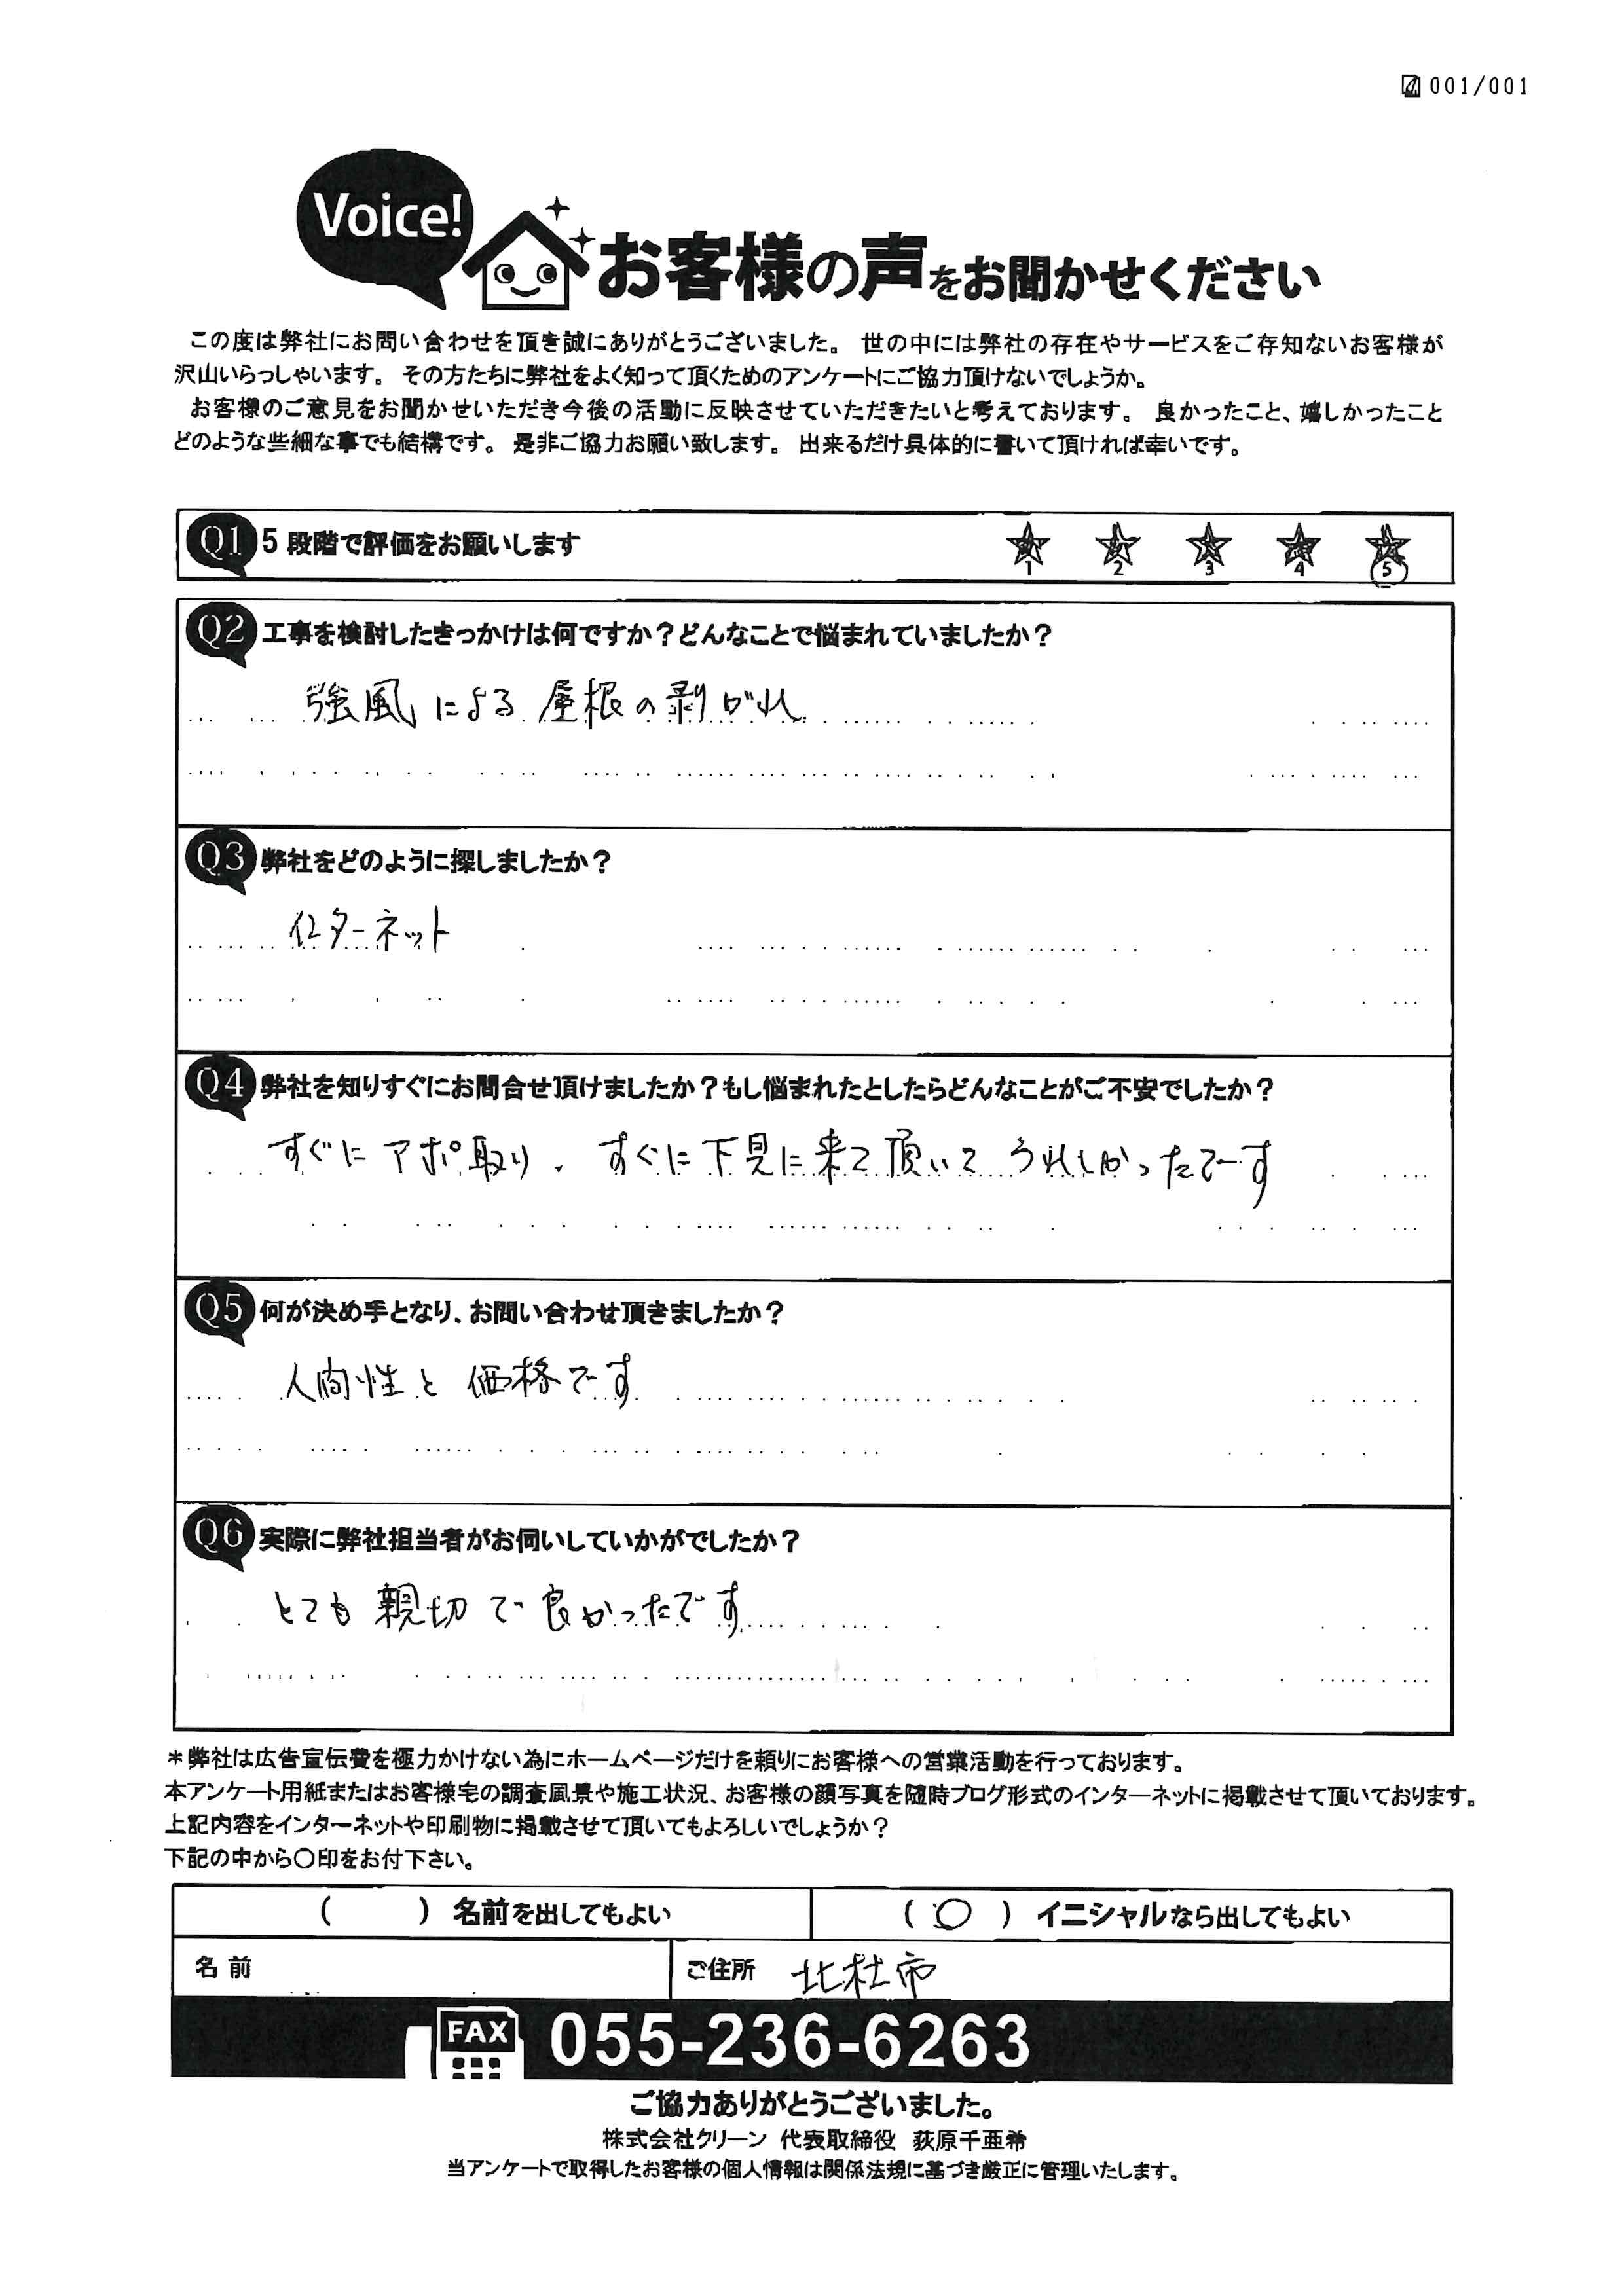 001/001
Voice!
お客様の声をお聞かせください
この度は弊社にお問い合わせを頂き誠にありがとうございました。 世の中には弊社の存在やサービスをご存知ないお客様が
沢山いらっしゃいます。 その方たちに弊社をよく知って頂くためのアンケートにご協力頂けないでしょうか。
お客様のご意見をお聞かせいただき今後の活動に反映させていただきたいと考えております。 良かったこと、嬉しかったこと
どのような些細な事でも結構です。 是非ご協力お願い致します。 出来るだけ具体的に書いて頂ければ幸いです。
Q1 5段階で評価をお願いします
1 2 3 4 5
Q2 工事を検討したきっかけは何ですか？どんなことで悩まれていましたか？
強風による屋根の剥がれ
Q3 弊社をどのように探しましたか？
インターネット
Q4 弊社を知りすぐにお問合せ頂けましたか？もし悩まれたとしたらどんなことがご不安でしたか？
すぐにアポ取り、すぐに下見に来て頂いてうれしかったです
Q5 何が決め手となり、お問い合わせ頂きましたか？
人間性と価格です
Q6 実際に弊社担当者がお伺いしていかがでしたか？
とても親切で良かったです
＊弊社は広告宣伝費を極力かけない為にホームページだけを頼りにお客様への営業活動を行っております。
本アンケート用紙またはお客様宅の調査風景や施工状況、お客様の顔写真を随時ブログ形式のインターネットに掲載させて頂いております。
上記内容をインターネットや印刷物に掲載させて頂いてもよろしいでしょうか？
下記の中から〇印をお付下さい。
（　　）名前を出してもよい （〇）イニシャルなら出してもよい
名前 ご住所 北杜市
FAX 055-236-6263
ご協力ありがとうございました。
株式会社クリーン 代表取締役 荻原千亜希
当アンケートで取得したお客様の個人情報は関係法規に基づき厳正に管理いたします。